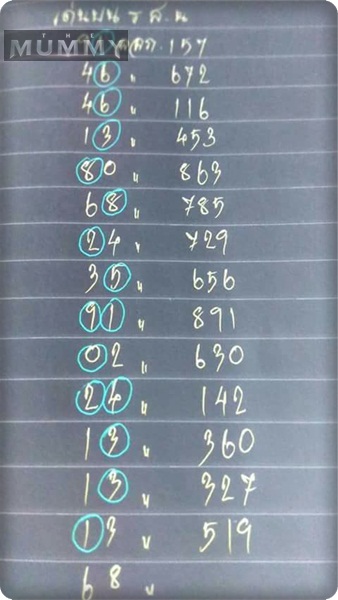 เด่นบน ร ส. น
THE
MUMMY
ออก. 157
46 " 672
46 " 116
13 " 453
80 " 863
68 " 785
24 " 729
35 " 656
91 " 891
02 " 630
24 " 142
13 " 360
13 " 327
13 " 519
68 "